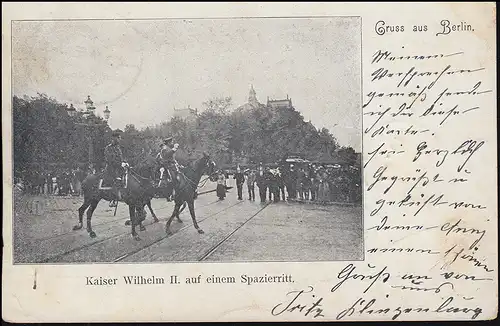 Gruss aus Berlin.
Meinem
Versprechen
gemäß sende
ich dir diese
Karte.
sei herzlich
Gegrüßt u
geküßt von
deine
einem
Gruß an von
uns
Fritz Klingenburg
Kaiser Wilhelm II. auf einem Spazierritt.